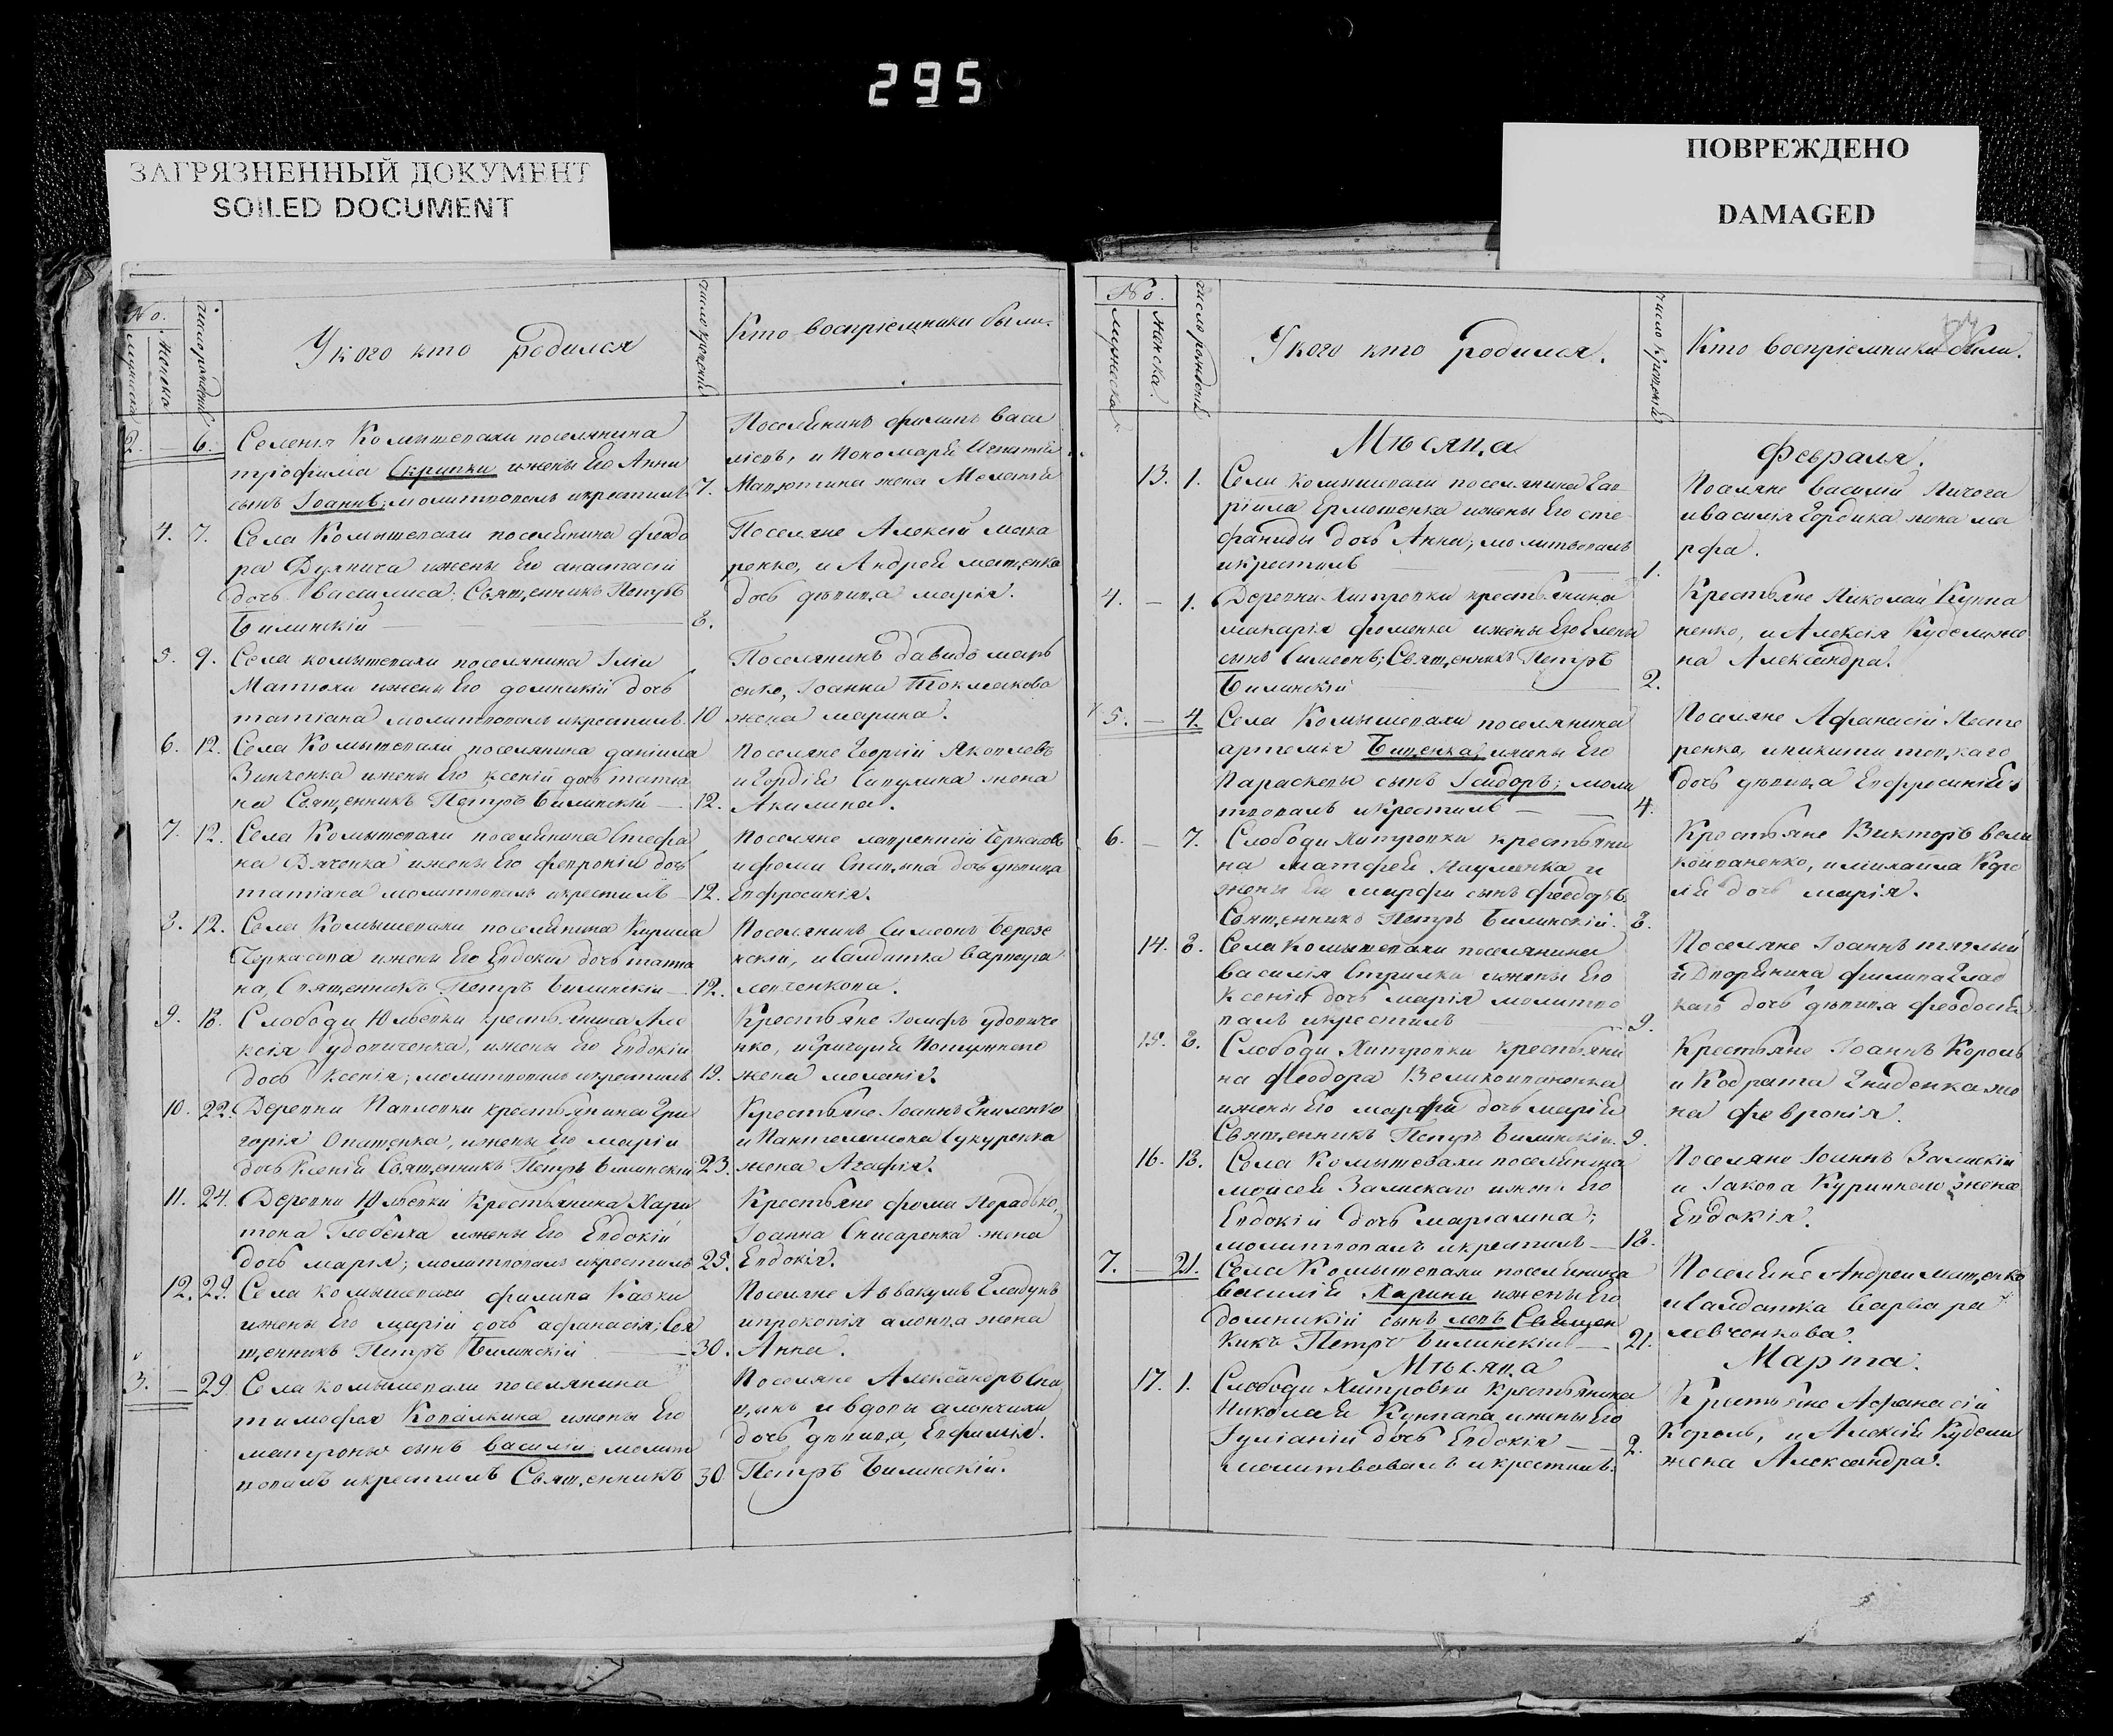 295
ЗАГРЯЗНЕННЫЙ ДОКУМЕНТ
SOILED DOCUMENT
ПОВРЕЖДЕНО
DAMAGED
No.
мужеска
женска
число рождения
У кого кто родился
число крещения
Кто воспріемники были.
2. — 6.
Селенія Комышевахи поселянина
трофима Скрипки ижены Его Анны
сынъ Іоаннъ; молитвовалъ икрестилъ 7.
Поселянинъ филипъ васи
лiевъ, и пономаря Игнатія
жена Меланія
4. 7.
Села Комышевахи поселянина феодо
ра ижены Его анастасіи
дочь василиса; Священникъ Петръ
Билинскій — 8.
Поселяне Алексій мака
ренко, и Андрей маценка
дочь дѣвица марія.
5. 9.
Села комышевахи поселянина Іліи
Матюхи ижены Его домникіи дочь
татіана молитвовалъ икрестилъ 10
Поселянинъ давидъ марь
енко, Іоанна Токмакова
жена марина.
6. 12.
Села Комышевахи поселянина даніила
Зинченка ижены Его ксеніи дочь татіа
на Священникъ Петръ Билинскій — 12.
Поселяне Георгій Яковлевъ
и Гордія Сипулина жена
Акилина.
7. 12.
Села Комышевахи поселянина Стефа
на Дяченка ижены Его февроніи дочь
татіана молитвовалъ икрестилъ — 12.
Поселяне лаврентій Черкасовъ
ифомы Спицына дочь дѣвица
Евфросинія.
8. 12.
Села Комышевахи поселянина Кирила
Черкасова ижены Его Евдокіи дочь татіа
на, Священникъ Петръ Билинскій — 12.
Поселянинъ Симеонъ березо
вскій, исалдатка варвара
левченкова.
9. 18.
Слободи Юльевки крестьянина Але
ксія удовиченка, ижены Его Евдокіи
дочь Ксенія; молитвовалъ икрестилъ 19.
Крестьяне Іосифъ удовиче
нко, игригорія
жена меланія.
10. 22.
Деревни Павловки крестьянина Гри
горія Опаценка, ижены Его маріи
дочь Ксенія Священникъ Петръ Билинскій 23.
Крестьяне Іоаннъ Гниленко
и Пантелимона Сукуренка
жена Агафія.
11. 24.
Деревни Юльевки Крестьянина Хари
тона Глобенка ижены Его Евдокіи
дочь марія; молитвовалъ икрестилъ 25.
Крестьяне фома Нерадько,
Іоанна Снисаренка жена
Евдокія.
12. 29.
Села комышевахи филипа Казки
ижены Его маріи дочь афанасія; Свя
щенникъ Петръ Билинскій — 30.
Поселяне Аввакумъ Гладунъ
ипрокопія жена
Анна.
3. — 29.
Села комышевахи поселянина
тимофея Копалкина ижены Его
матроны сынъ василій молит
вовалъ икрестилъ Священникъ 30
Поселяне Александръ Спи
цынъ ивдовы
дочь дѣвица, Евфимія.
Петръ Билинскій.
No.
мужеска
женска
число рожденія
У кого кто родился.
число крещенія
Кто воспріемники были.
Мѣсяца Февраля.
13. 1.
Села комышевахи поселянина Гав
ріила Ермоленка ижены Его сте
фаниды дочь Анна; молитвовалъ
икрестилъ — 1.
Поселяне василій Пичога
ивасилія Гордика жена ма
рфа.
4. — 1.
Деревни Хитровки крестьянина
макарія фоменка ижены Его Елены
сынъ Симеонъ; Священникъ Петръ
Билинскій — 2.
Крестьяне Николай Куппа
ненко, и Алексія Кубели же
на Александра.
5. — 4.
Села Комышевахи поселянина
артемья Биценка, ижены Его
Параскевы сынъ Ісидоръ; моли
твовалъ икрестилъ — 4.
Поселяне Афанасій Несте
ренко, иникиты
дочь дѣвица Евфросинія.
6. — 7.
Слободи Хитровки крестьяни
на матфея Науменка и
жены Его марфы сынъ феодоръ
Священникъ Петръ Билинскій. 8.
Крестьяне Викторъ вели
коиваненко, имихаила Коро
лй дочь марія.
14. 8.
Села Комышевахи поселянина
василія Стрилка ижены Его
Ксеніи дочь марія молитво
валъ икрестилъ — 9.
Поселяне Іоаннъ
и Дворянина филипа Глад
каго дочь дѣвица феодосія
15. 8.
Слободи Хитровки крестьяни
на феодора Великоиваненка
ижены Его марфы дочь марія
Священникъ Петръ Билинскій. 9.
Крестьяне Іоаннъ Король
и Кодрата Гниденка же
на февронія.
16. 18.
Села Комышевахи поселянина
моисея Залискаго ижены Его
Евдокіи дочь маріамна;
молитвовалъ икрестилъ — 18.
Поселяне Іоаннъ Залискій
и Іакова Куриннаго жена
Евдокія.
7. — 21.
Села Комышевахи поселянина
василія Ларина ижены Его
домникіи сынъ левъ Священ
никъ Петръ Билинскій — 21.
Поселяне Андрей маценко
исалдатка варвара
левченкова.
Мѣсяца Марта.
17. 1.
Слободи Хитровки крестьянина
Николая Куппана ижены Его
Іуліаніи дочь Евдокія — 2.
молитвовалъ икрестилъ.
Крестьяне Афанасій
Король, и Алексія Кубели
жена Александра.